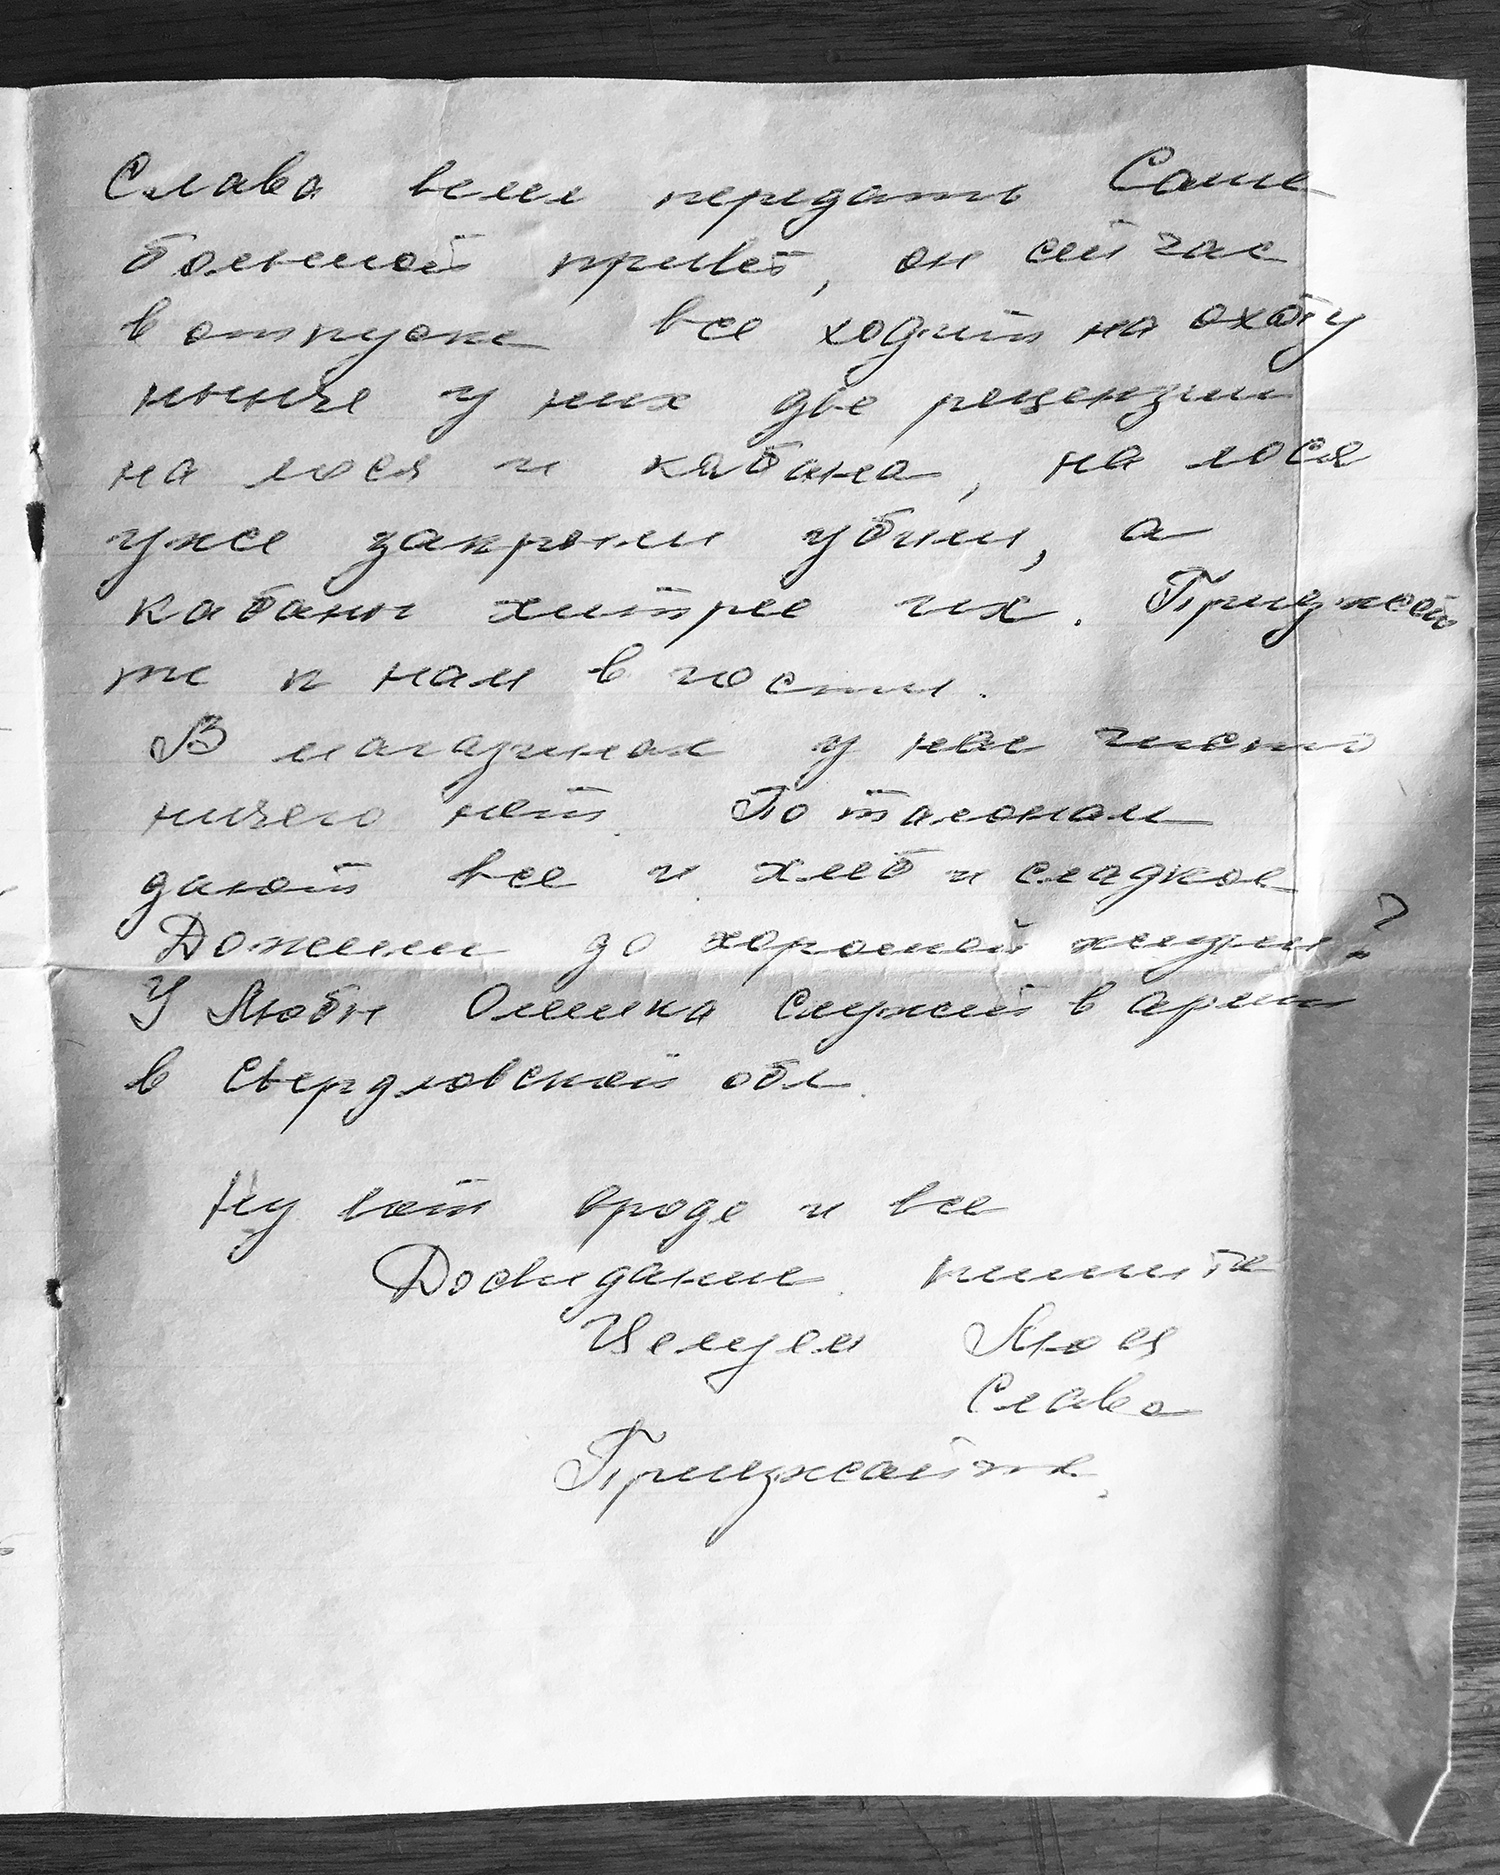 Слава велел передать Саше
большой привет, он сейчас
в отпуске все ходит на охоту
нынче у них две рецензии
на лося и кабана, на лося
уже закрыли убили, а
кабаны хитрее их. Приезжай
те к нам в гости.
В магазинах у нас чисто
ничего нет. По талонам
дают все и хлеб и сладкое
Дожили до хорошей жизни?
У Любы Олешка служит в армии
в Свердловской обл.
Ну вот вроде и все
Досвидание пишите
Целуем Люся
Слава
Приезжайте.